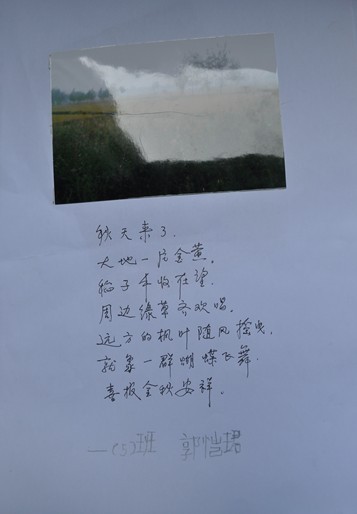 秋天来了.
大地一片金黄。
稻子丰收在望.
周边绿草齐欢唱。
远方的枫叶随风摇曳,
就象一群蝴蝶飞舞.
喜报金秋安祥。
一(5)班 郭恺珺